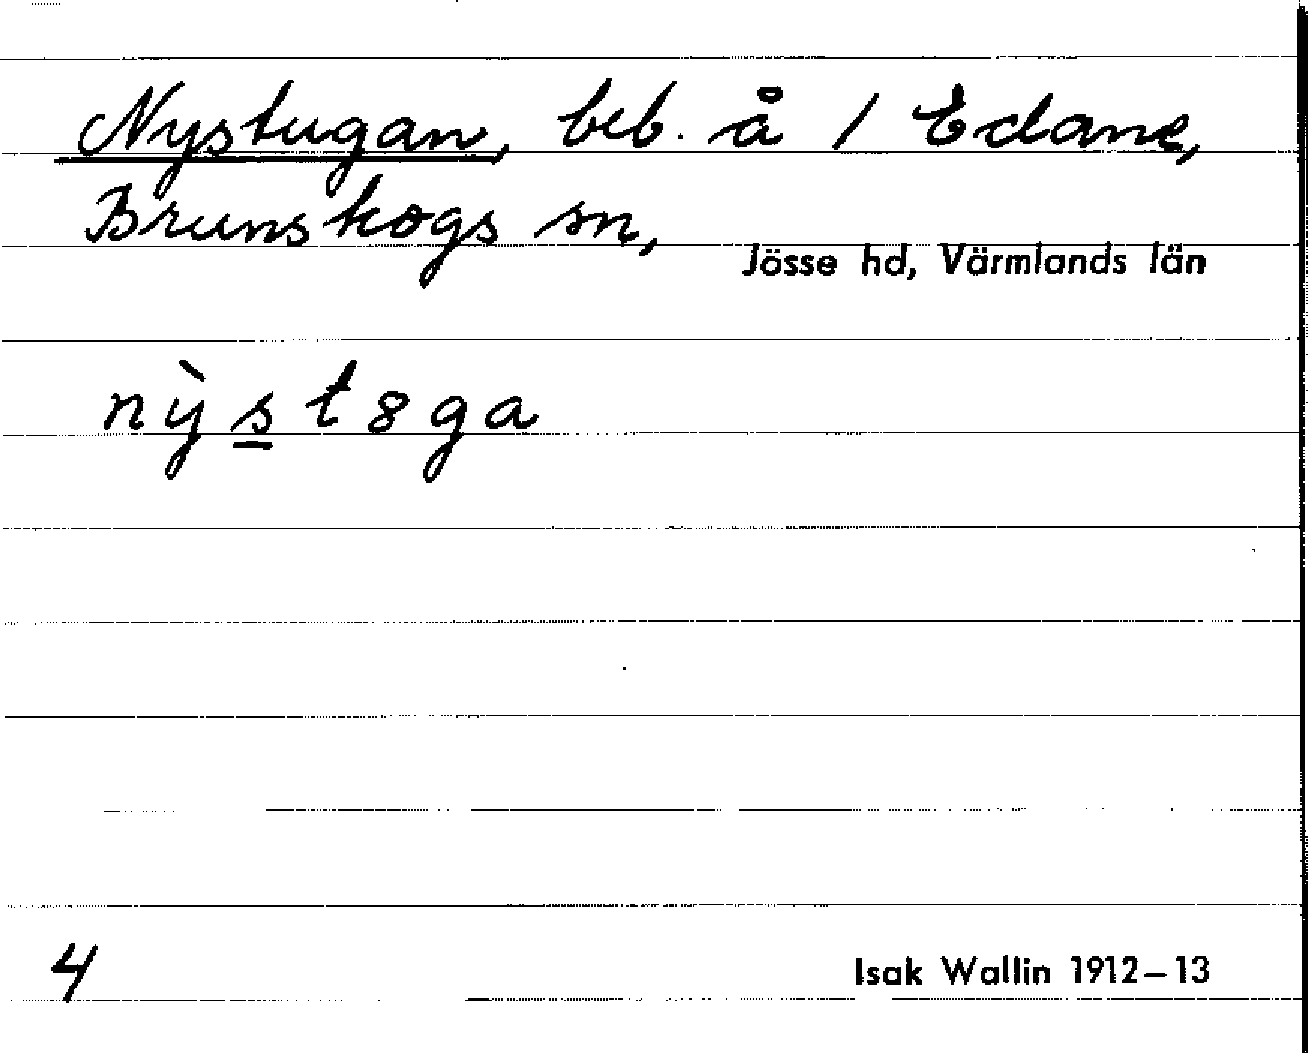 Nystugan, beb. å 1 Edane,
Brunskogs sn,
Jösse hd, Värmlands län
nỳst8ga
4
Isak Wallin 1912–13